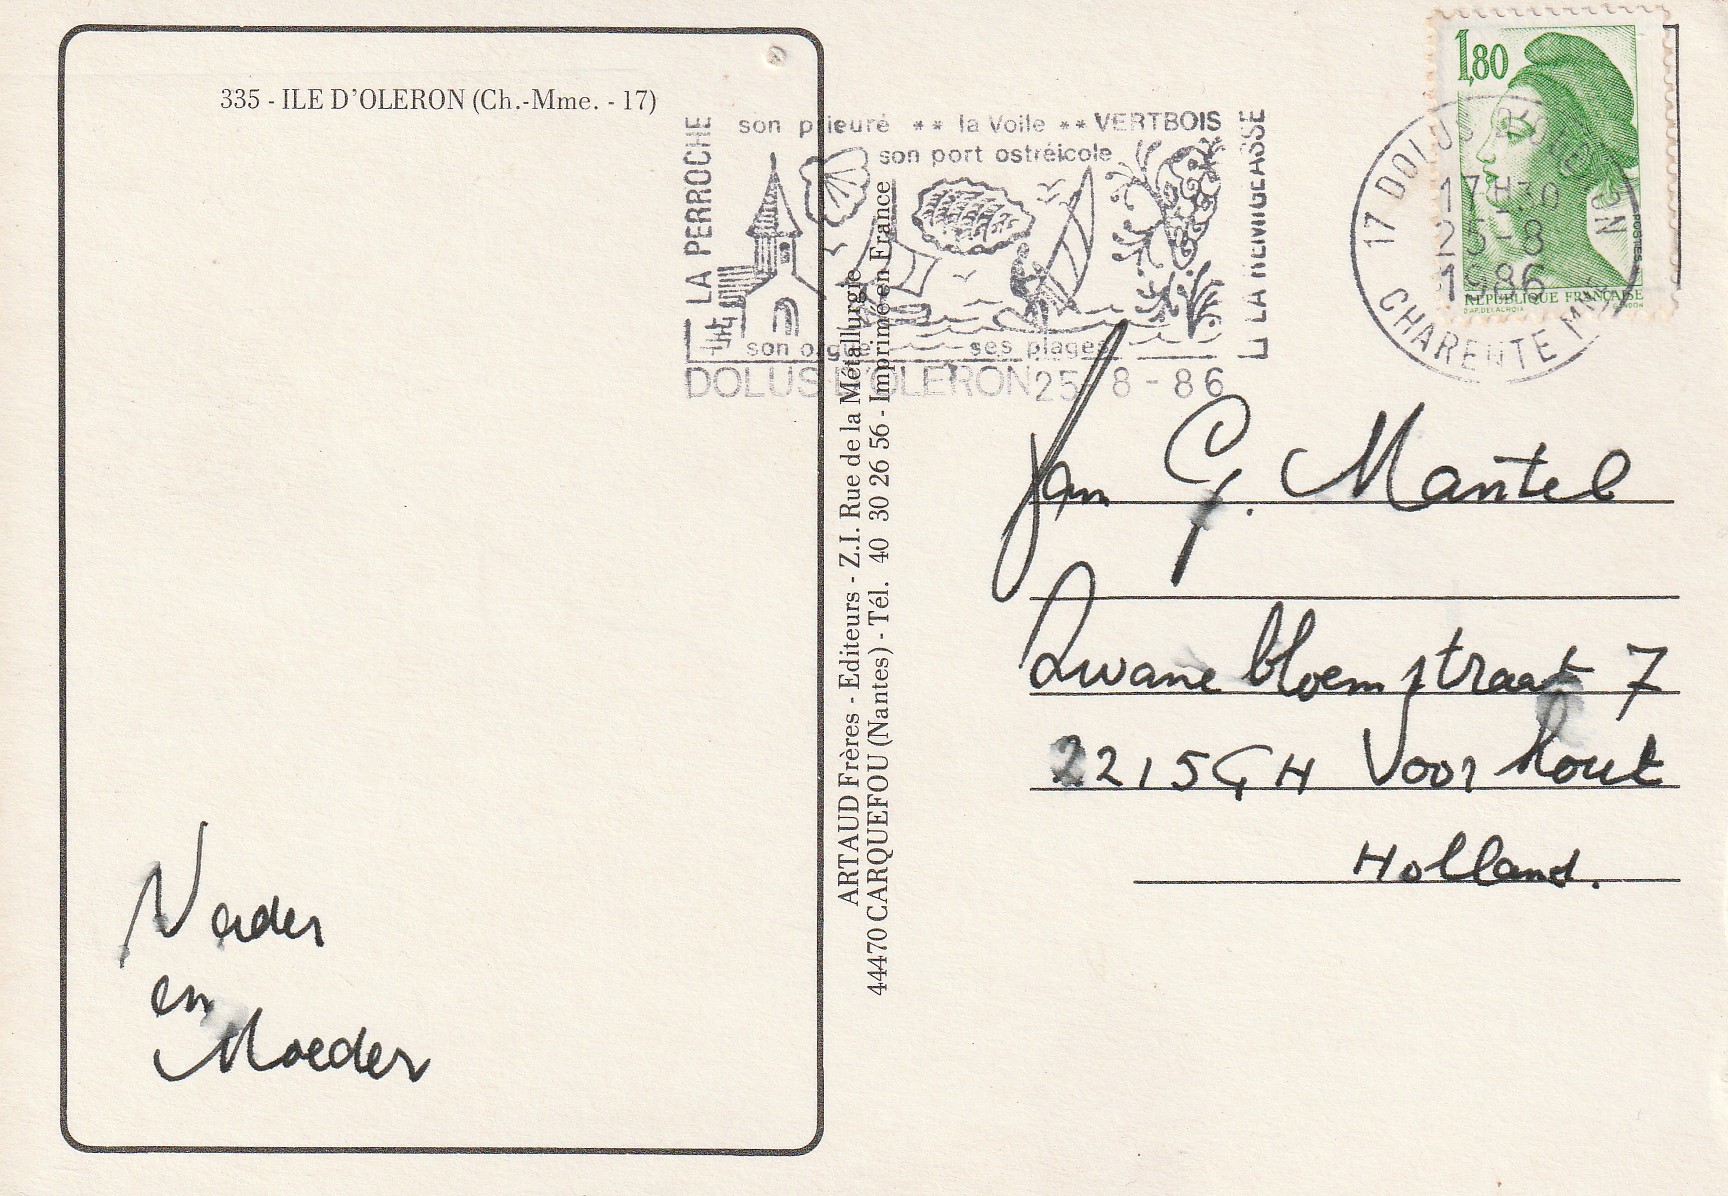 335 - ILE D'OLERON (Ch.-Mme. - 17)
Vader
en
Moeder
ARTAUD Frères - Editeurs - Z.I. Rue de la Métallurgie
44470 CARQUEFOU (Nantes) - Tél. 40 30 26 56 - Imprimé en France
LA PERROCHE
son prieuré ** la Voile ** VERTBOIS
son port ostréicole
LA REMIGEASSE
son orgue ses plages
DOLUS D'OLERON 25-8-86
1,80
POSTES
REPUBLIQUE FRANÇAISE
D'AP. DELACROIX
17 DOLUS D'OLERON
17H30
25-8
1986
CHARENTE MME
Jan G. Mantel
Zwanebloemstraat 7
2215GH Voorhout
Holland.